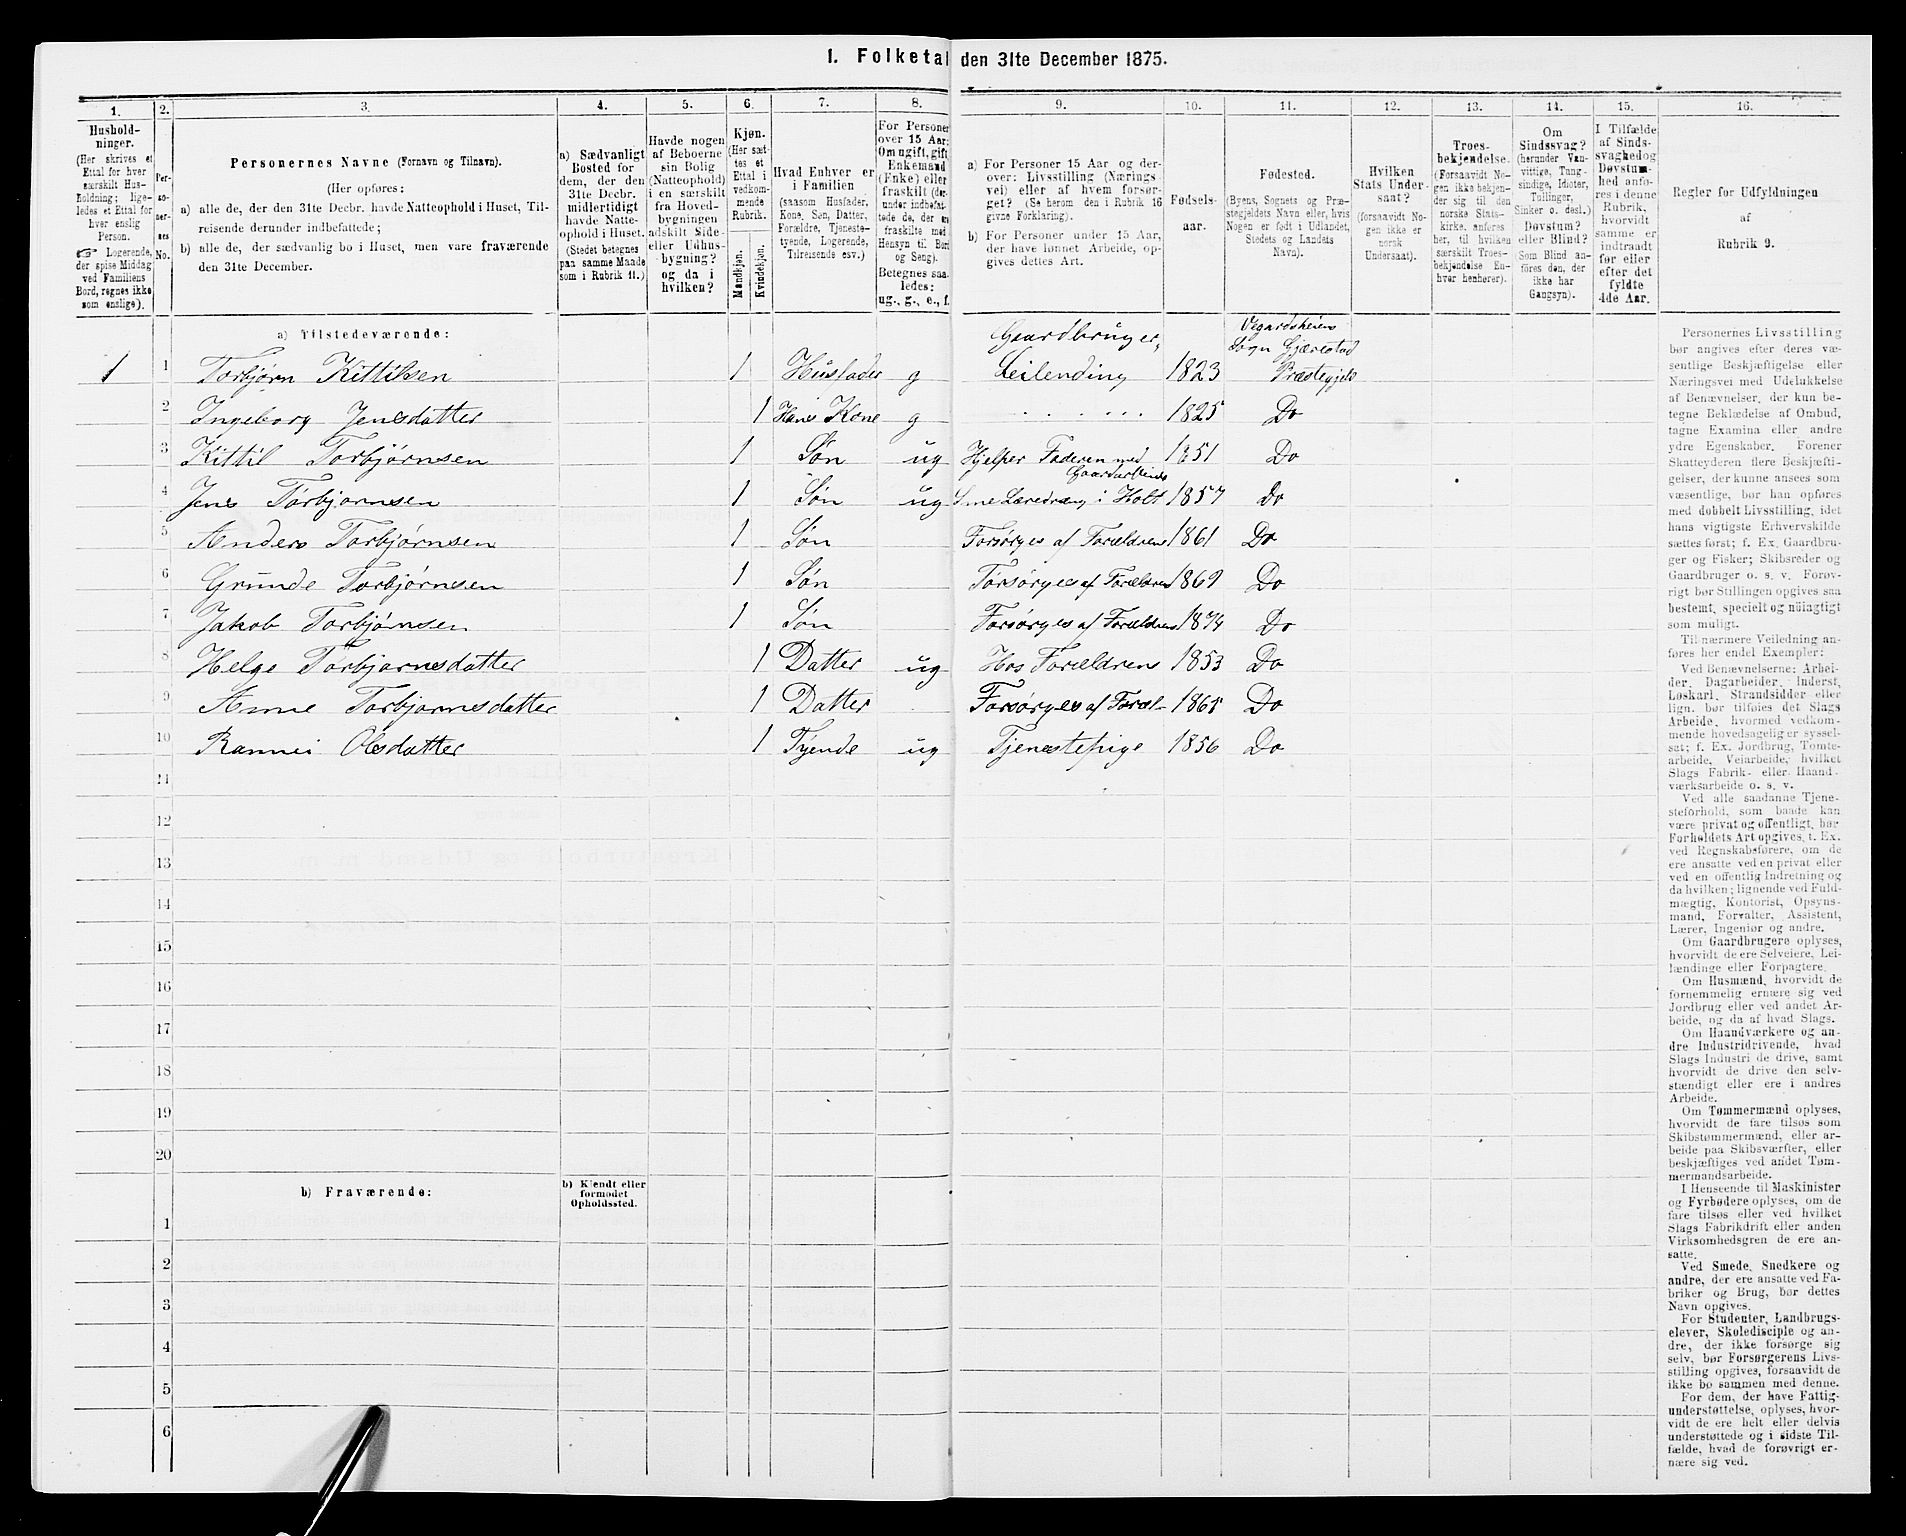 1. Folketal den 31te December 1875.
1. 2. 3. 4. 5. 6. 7. 8. 9. 10. 11. 12. 13. 14. 15. 16.
Hushold-
ninger.
(Her skrives et
Ettal for hver
særskilt Hus-
holdning; lige-
ledes et Ettal for
hver enslig
Person.
☞ Logerende,
der spise Middag
ved Familiens
Bord, regnes ikke
som enslige).
Per-
so-
ner-
nes
No.
Personernes Navne (Fornavn og Tilnavn).
(Her opføres:
a) alle de, der den 31te Decbr. havde Natteophold i Huset, Til-
reisende derunder indbefattede;
b) alle de, der sædvanlig bo i Huset, men vare fraværende
den 31te December.
a) Sædvanligt
Bosted for
dem, der den
31te Decbr.
midlertidigt
havde Natte-
ophold i Huset.
(Stedet betegnes
paa samme Maade
som i Rubrik 11.)
Havde nogen
af Beboerne
sin Bolig
(Natteophold)
i en særskilt
fra Hoved-
bygningen
adskilt Side-
eller Udhus-
bygning?
og da i
hvilken?
Kjøn.
(Her sæt-
tes et
Ettal i
vedkom-
mende
Rubrik.
Mandkjøn.
Kvindekjøn.
Hvad Enhver er
i Familien
(saasom Husfader,
Kone, Søn, Datter,
Forældre, Tjeneste-
tyende, Logerende,
Tilreisende osv.)
For Personer
over 15 Aar:
Om ugift, gift,
Enkemand
(Enke) eller
fraskilt (der-
under indbefat-
tede de, der ere
fraskilte med
Hensyn til Bord
og Seng).
Betegnes saa-
ledes:
ug., g., e., f.
a) For Personer 15 Aar og der-
over: Livsstilling (Nærings-
vei) eller af hvem forsør-
get? (Se herom den i Rubrik 16
givne Forklaring).
b) For Personer under 15 Aar,
der have lønnet Arbeide, op-
gives dettes Art.
Fødsels-
aar.
Fødested.
(Byens, Sognets og Præ-
stegjeldets Navn eller, hvis
Nogen er født i Udlandet,
Stedets og Landets
Navn).
Hvilken
Stats Under-
saat?
(forsaavidt No-
gen ikke er
norsk
Undersaat).
Troes-
bekjendelse.
(Forsaavidt No-
gen ikke bekjen-
der sig til den
norske Stats-
kirke, anføres
her, til hvilken
særskilt Troes-
bekjendelse En-
hver henhører).
Om
Sindssvag?
(herunder Van-
vittige, Tung-
sindige, Idioter,
Tullinger,
Sinker o. desl.)
Døvstum?
eller Blind?
(Som Blind an-
føres den, der
ikke har
Gangsyn).
I Tilfælde
af Sinds-
svaghed og
Døvstum-
hed anfø-
res i denne
Rubrik,
hvorvidt
samme er
indtraadt
før eller
efter det
fyldte
4de Aar.
Regler for Udfyldningen
af
Rubrik 9.
a) Tilstedeværende:
1 1 Torbjørn Kittilsen 1 Husfader g Gaardbruger, Leilending 1823 Vegardsheiens Sogn Gjærestad Præstegjeld
2 Ingeborg Jensdatter 1 Hans Kone g 1825 Do
3 Kittil Torbjørnsen 1 Søn ug Hjelper Faderen med Gaardarbeide 1851 Do
4 Jens Torbjørnsen 1 Søn ug i Holt 1857 Do
5 Anders Torbjørnsen 1 Søn Forsørges af Forældrene 1861 Do
6 Grunde Torbjørnsen 1 Søn Forsørges af Forældrene 1869 Do
7 Jakob Torbjørnsen 1 Søn Forsørges af Forældrene 1874 Do
8 Helge Torbjørnsdatter 1 Datter ug Hos Forældrene 1853 Do
9 Anne Torbjørnsdatter 1 Datter Forsørges af Foræl- 1865 Do
10 Rannei Olsdatter 1 Tyende ug Tjenestepige 1856 Do
11
12
13
14
15
16
17
18
19
20
b) Fraværende:
b) Kjendt eller
formodet
Opholdssted.
1
2
3
4
5
6
Personernes Livsstilling
bør angives efter deres væ-
sentlige Beskjæftigelse eller
Næringsvei med Udelukkelse
af Benævnelser, der kun be-
tegne Beklædelse af Ombud,
tagne Examina eller andre
ydre Egenskaber. Forener
Skatteyderen flere Beskjæfti-
gelser, der kunne ansees som
væsentlige, bør han opføres
med dobbelt Livsstilling, idet
hans vigtigste Erhvervskilde
sættes først; f. Ex. Gaardbru-
ger og Fisker; Skibsreder og
Gaardbruger o. s. v. Forøv-
rigt bør Stillingen opgives saa
bestemt, specielt og nøiagtigt
som muligt.
Til nærmere Veiledning an-
føres her endel Exempler:
Ved Benævnelserne: Arbei-
der, Dagarbeider, Inderst,
Løskarl, Strandsidder eller
lign. bør tilføies det Slags
Arbeide, hvormed vedkom-
mende hovedsagelig er syssel-
sat; f. Ex. Jordbrug, Tomte-
arbeide, Veiarbeide, hvilket
Slags Fabrik- eller Haand-
værksarbeide o. s. v.
Ved alle saadanne Tjene-
steforhold, som baade kan
være privat og offentligt, bør
Forholdets Art opgives, t. Ex.
ved Regnskabsførere, om de
ere ansatte ved en privat eller
ved en offentlig Indretning og
da hvilken; lignende ved Fuld-
mægtig, Kontorist, Opsyns-
mand, Forvalter, Assistent,
Lærer, Ingeniør og andre.
Om Gaardbrugere oplyses,
hvorvidt de ere Selveiere, Lei-
lændinge eller Forpagtere.
Om Husmænd, hvorvidt de
fornemmelig ernære sig ved
Jordbrug eller ved andet Ar-
beide, og da af hvad Slags.
Om Haandværkere og an-
dre Industridrivende, hvad
Slags Industri de drive, samt
hvorvidt de drive den selv-
stændigt eller ere i andres
Arbeide.
Om Tømmermænd oplyses,
hvorvidt de fare tilsøs som
Skibstømmermænd, eller ar-
beide paa Skibsværfter, eller
beskjæftiges ved andet Tøm-
mermandsarbeide.
I Henseende til Maskinister
og Fyrbødere oplyses, om de
fare tilsøs eller ved hvilket
Slags Fabrikdrift eller anden
Virksomhedsgren de ere an-
satte.
Ved Smede, Snedkere og
andre, der ere ansatte ved Fa-
briker og Brug, bør dettes
Navn opgives.
For Studenter, Landbrugs-
elever, Skoledisciple og an-
dre, der ikke forsørge sig
selv, bør Forsørgerens Livs-
stilling opgives, forsaavidt de
ikke bo sammen med denne.
For dem, der have Fattig-
understøttelse, oplyses, hvor-
vidt de ere helt eller delvis
understøttede og i sidste Til-
fælde, hvad de forøvrigt er-
nære sig ved.